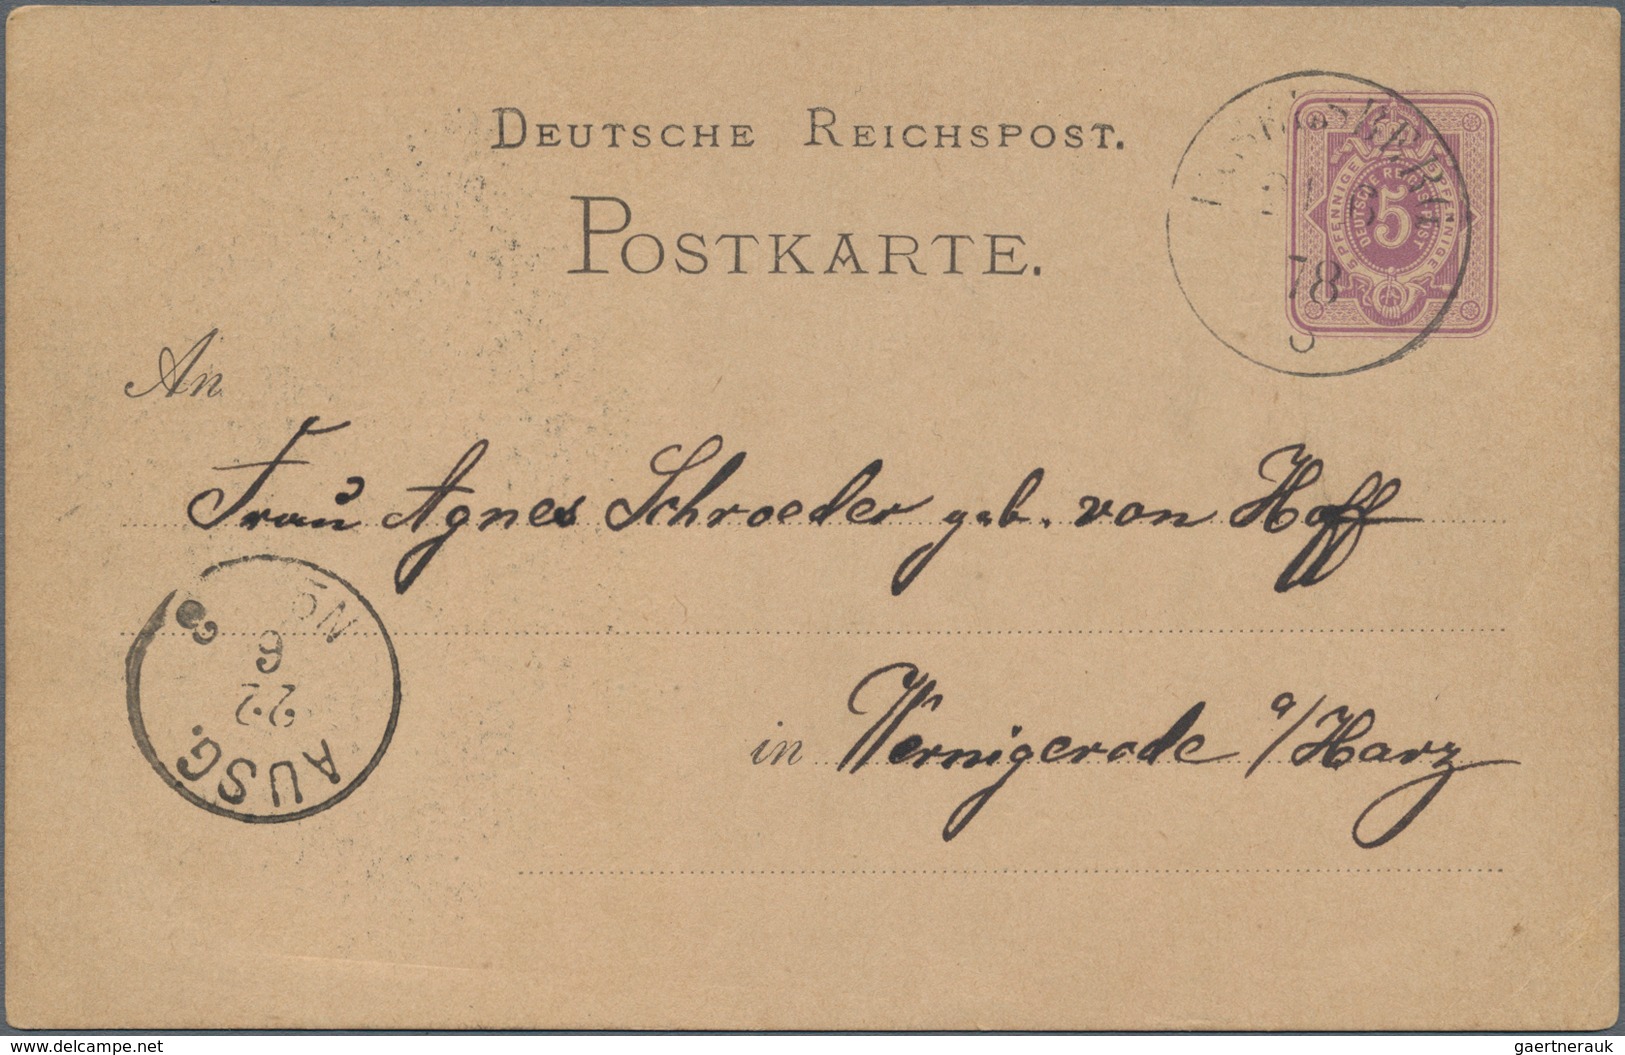 DEUTSCHE REICHSPOST.
POSTKARTE.
5 PFENNIGE
5 PFENNIGE
DEUTSCHE REICHSPOST
5
78
An
Frau Agnes Schroeder geb. von Hoff
in Wernigerode a/Harz
AUSG.
22
6
No
3
www.delcampe.net
gaertnerauk